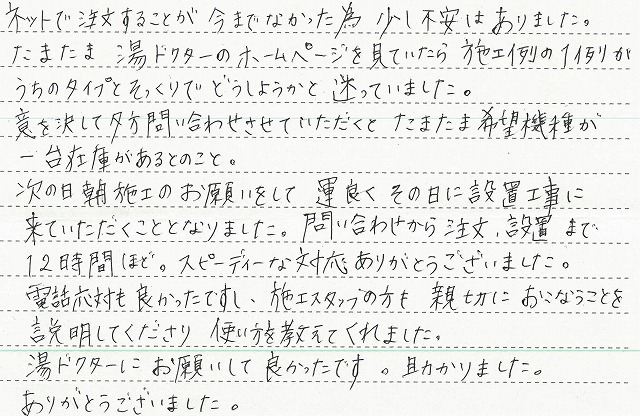 ネットで注文することが 今までなかった為 少し不安はありました。
たまたま 湯ドクターのホームページを見ていたら 施工例の1例が
うちのタイプとそっくりで どうしようかと 迷っていました。
意を決して夕方問い合わせさせていただくと たまたま希望機種が
一台在庫があるとのこと。
次の日朝施工のお願いをして 運良く その日に設置工事に
来ていただくこととなりました。問い合わせから注文、設置まで
12時間ほど。スピーディーな対応ありがとうございました。
電話応対も良かったですし、施工スタッフの方も 親切に おこなうことを
説明してくださり 使い方を教えてくれました。
湯ドクターに お願いして 良かったです。助かりました。
ありがとうございました。